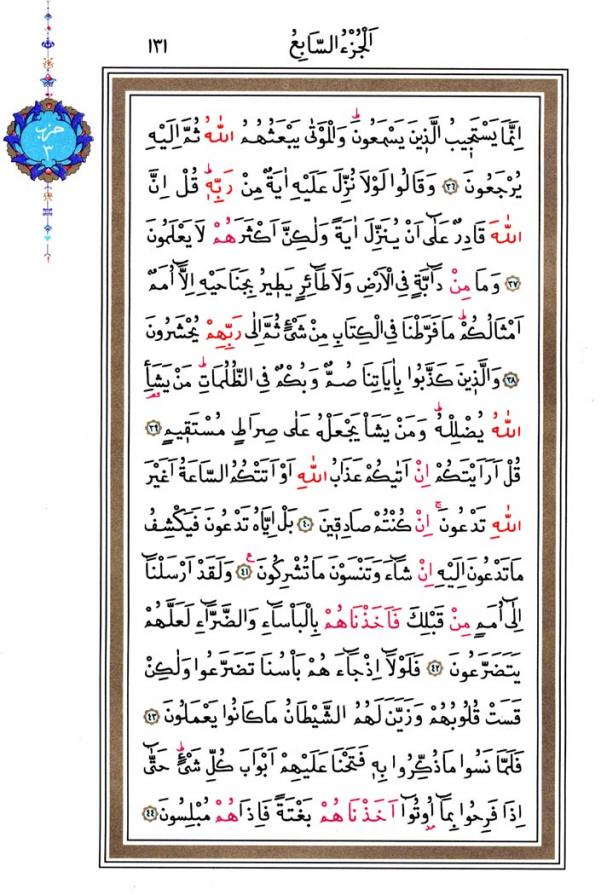 اَلْجُزْءُ السَّابِعُ
١٣١
حزب
٣
اِنَّمَا يَسْتَجٖيبُ الَّذٖينَ يَسْمَعُونَؕ وَالْمَوْتٰى يَبْعَثُهُمُ اللّٰهُ ثُمَّ اِلَيْهِ
يُرْجَعُونَ ﴿٣٦﴾ وَقَالُوا لَوْلَا نُزِّلَ عَلَيْهِ اٰيَةٌ مِنْ رَبِّهٖؕ قُلْ اِنَّ
اللّٰهَ قَادِرٌ عَلٰٓى اَنْ يُنَزِّلَ اٰيَةً وَلٰكِنَّ اَكْثَرَهُمْ لَا يَعْلَمُونَ
﴿٣٧﴾ وَمَا مِنْ دَٓابَّةٍ فِي الْاَرْضِ وَلَا طَٓائِرٍ يَطٖيرُ بِجَنَاحَيْهِ اِلَّٓا اُمَمٌ
اَمْثَالُكُمْؕ مَا فَرَّطْنَا فِي الْكِتَابِ مِنْ شَيْءٍ ثُمَّ اِلٰى رَبِّهِمْ يُحْشَرُونَ
﴿٣٨﴾ وَالَّذٖينَ كَذَّبُوا بِاٰيَاتِنَا صُمٌّ وَبُكْمٌ فِي الظُّلُمَاتِؕ مَنْ يَشَأِ
اللّٰهُ يُضْلِلْهُؕ وَمَنْ يَشَأْ يَجْعَلْهُ عَلٰى صِرَاطٍ مُسْتَقٖيمٍ ﴿٣٩﴾
قُلْ اَرَاَيْتَكُمْ اِنْ اَتٰيكُمْ عَذَابُ اللّٰهِ اَوْ اَتَتْكُمُ السَّاعَةُ اَغَيْرَ
اللّٰهِ تَدْعُونَۚ اِنْ كُنْتُمْ صَادِقٖينَ ﴿٤٠﴾ بَلْ اِيَّاهُ تَدْعُونَ فَيَكْشِفُ
مَا تَدْعُونَ اِلَيْهِ اِنْ شَٓاءَ وَتَنْسَوْنَ مَا تُشْرِكُونَ ﴿٤١﴾ وَلَقَدْ اَرْسَلْنَٓا
اِلٰٓى اُمَمٍ مِنْ قَبْلِكَ فَاَخَذْنَاهُمْ بِالْبَأْسَٓاءِ وَالضَّرَّٓاءِ لَعَلَّهُمْ
يَتَضَرَّعُونَ ﴿٤٢﴾ فَلَوْلَٓا اِذْ جَٓاءَهُمْ بَأْسُنَا تَضَرَّعُوا وَلٰكِنْ
قَسَتْ قُلُوبُهُمْ وَزَيَّنَ لَهُمُ الشَّيْطَانُ مَا كَانُوا يَعْمَلُونَ ﴿٤٣﴾
فَلَمَّا نَسُوا مَا ذُكِّرُوا بِهٖ فَتَحْنَا عَلَيْهِمْ اَبْوَابَ كُلِّ شَيْءٍؕ حَتّٰٓى
اِذَا فَرِحُوا بِمَٓا اُوتُٓوا اَخَذْنَاهُمْ بَغْتَةً فَاِذَا هُمْ مُبْلِسُونَ ﴿٤٤﴾